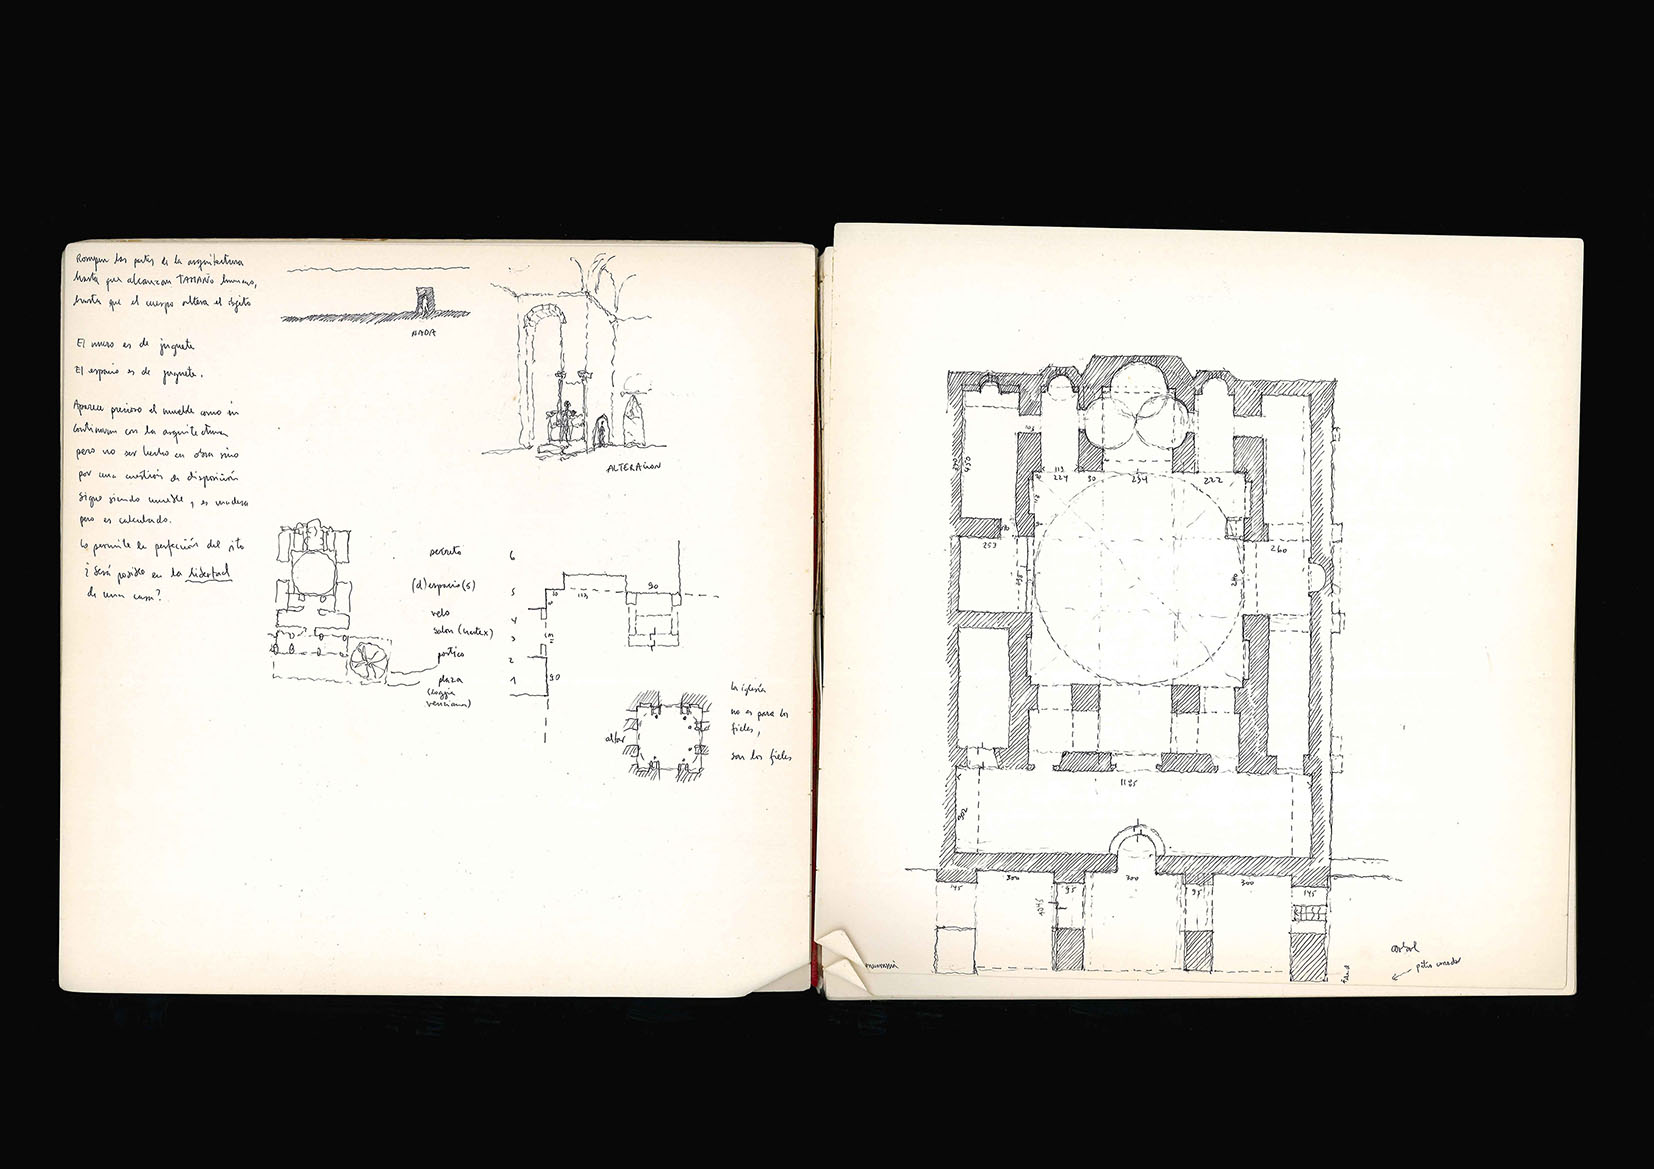 Rompen las partes de la arquitectura
hasta que alcanzan TAMAÑO humano,
hasta que el cuerpo altera el objeto
El muro es de juguete
El espacio es de juguete.
Aparece precioso el mueble como in
continuum con la arquitectura
pero no ser hecho en obra sino
por una cuestión de disposición
sigue siendo mueble, es madera
pero es calculado.
Lo permite la perfección del rito
¿Será posible en la libertad
de una casa?
NADA
ALTERACION
secreto 6
(d)espacio(s) 5
velo 4
salon (nartex) 3
portico 2
plaza 1
(loggia
veneciana)
10
113
90
90
altar
la iglesia
no es para los
fieles,
son los fieles
450
113
224
50
254
222
253
260
240
1195
302
145
300
95
300
95
300
145
patio